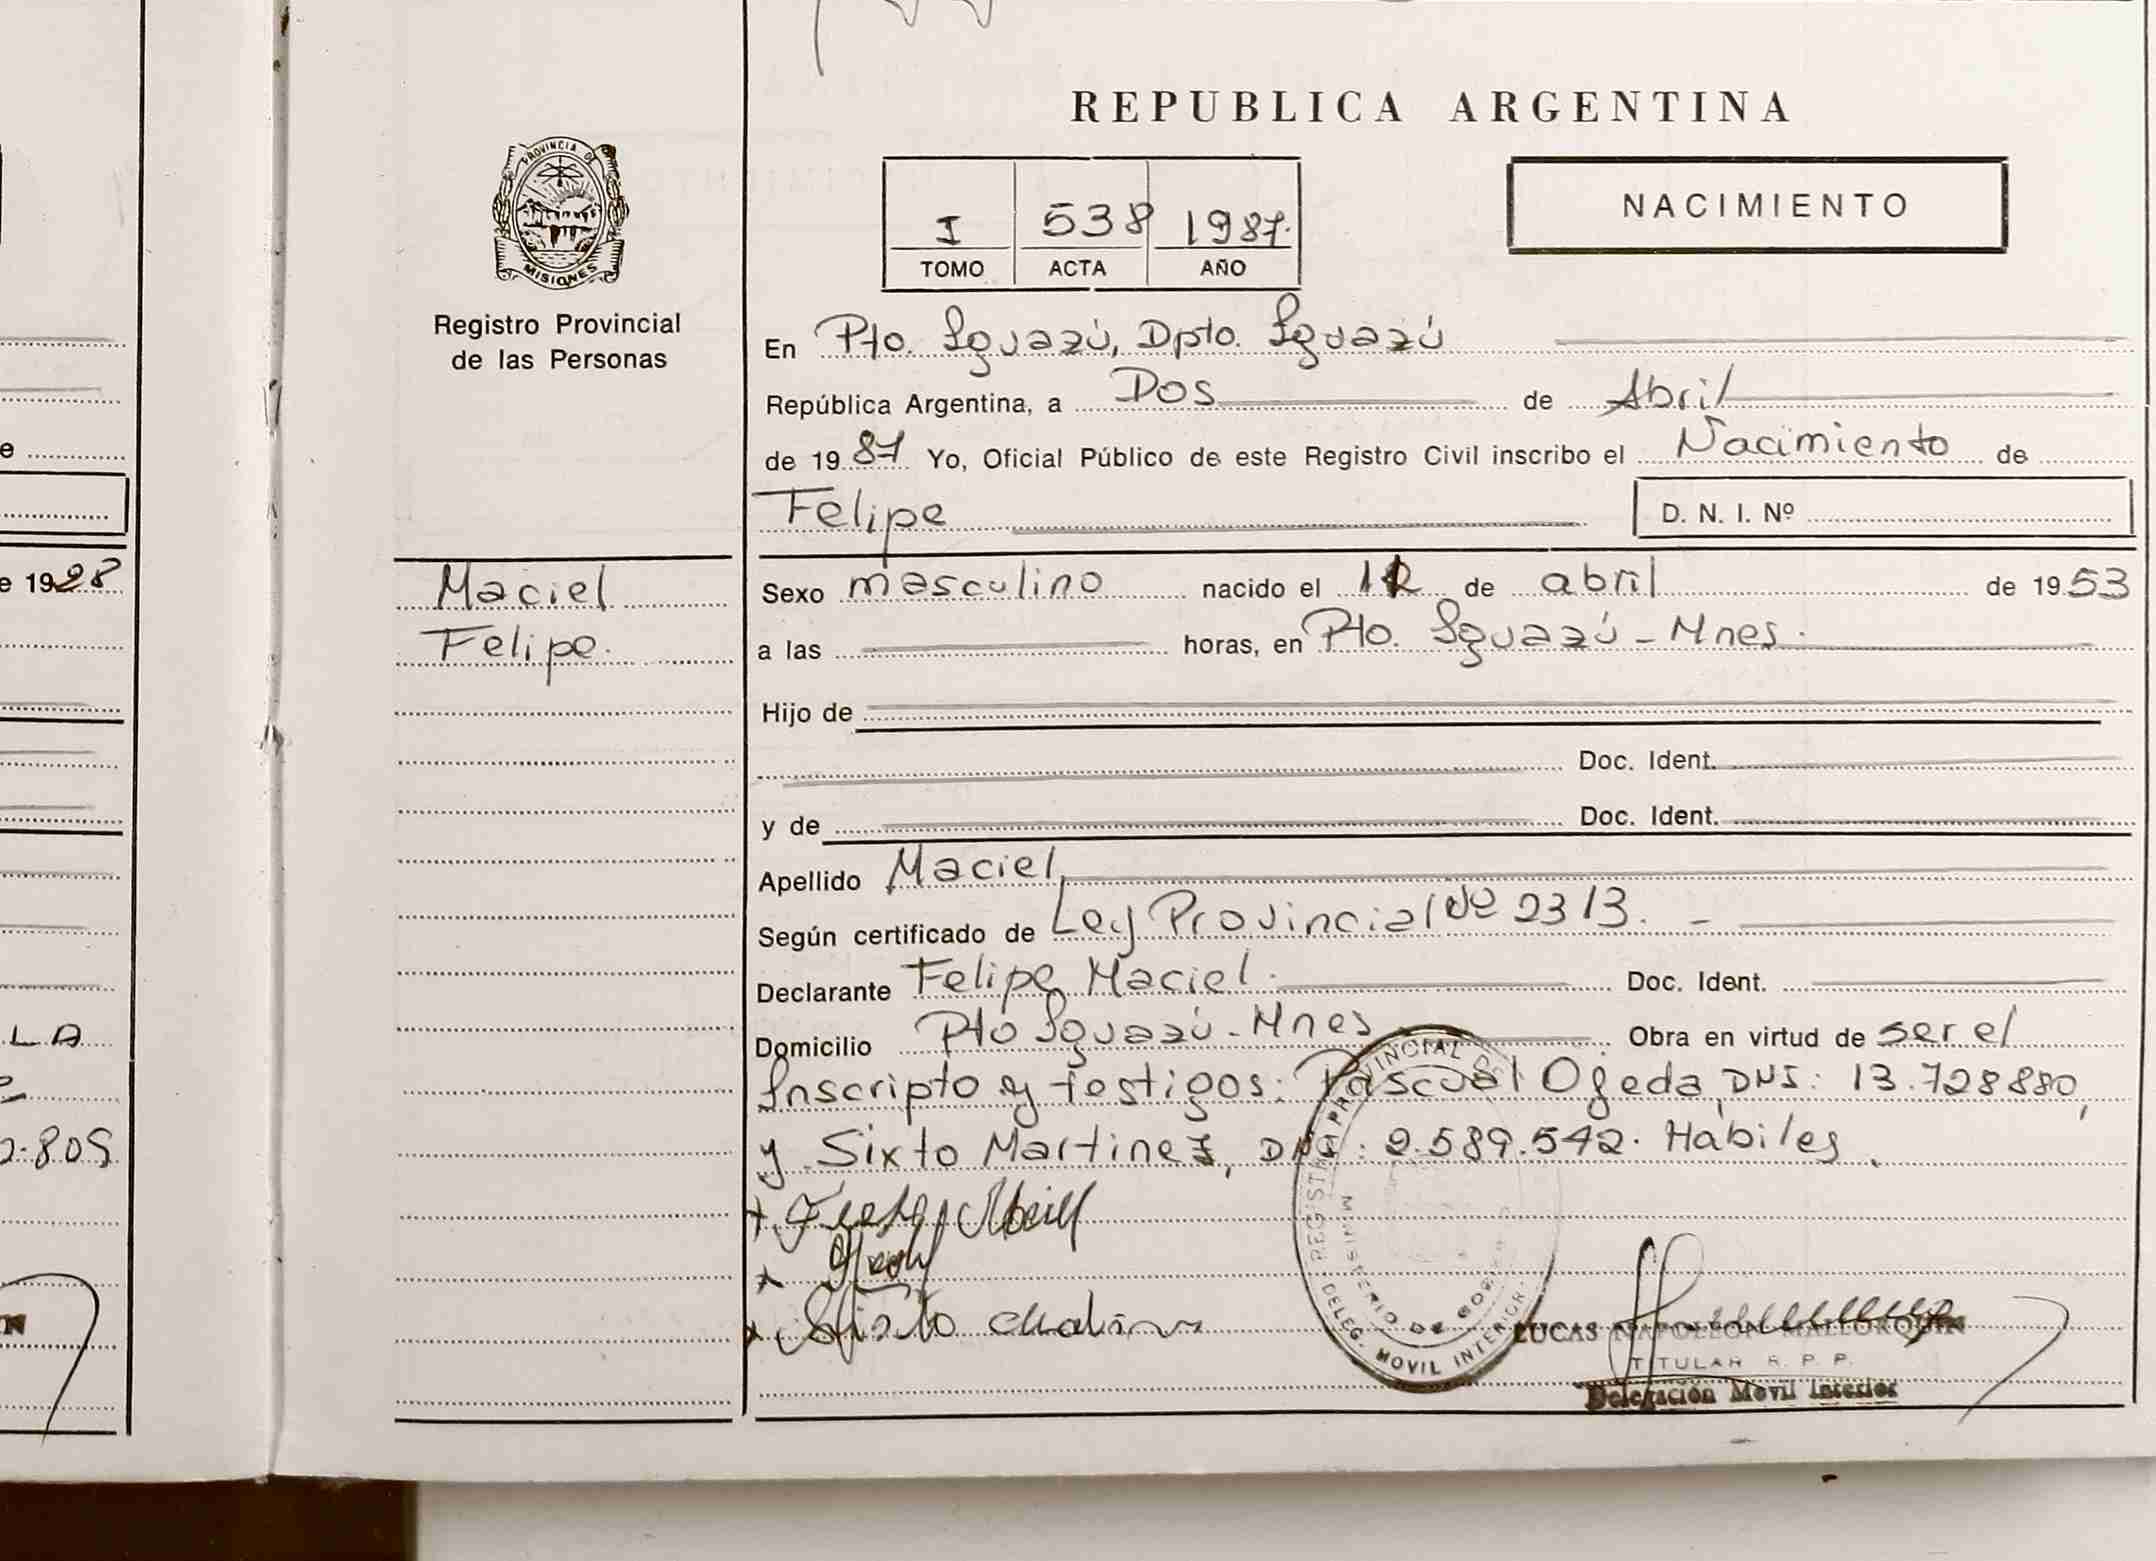 REPUBLICA ARGENTINA
PROVINCIA DE
MISIONES
Registro Provincial
de las Personas
I 538 1987.
TOMO ACTA AÑO
NACIMIENTO
En Pto. Iguazú, Dpto. Iguazú
República Argentina, a Dos de Abril
de 1987 Yo, Oficial Público de este Registro Civil inscribo el Nacimiento de
Felipe D. N. I. Nº
Maciel
Felipe.
Sexo masculino nacido el de abril de 1953
a las horas, en Pto. Iguazú - Mnes.
Hijo de
Doc. Ident.
y de Doc. Ident.
Apellido Maciel
Según certificado de Ley Provincial Nº 2313. -
Declarante Felipe Maciel. Doc. Ident.
Domicilio Pto Iguazú - Mnes Obra en virtud de ser el
Inscripto y testigos: Pascual Ojeda, DNI: 13.728880,
y Sixto Martinez, DNI: 2.589.542. Hábiles
REGISTRO PROVINCIAL DE
MINISTERIO DE
DELEG. MOVIL INTERIOR
LUCAS NAPOLEON MALLORQUIN
TITULAR R. P. P.
Delegación Movil Interior
e
e 1928
LA
2.809